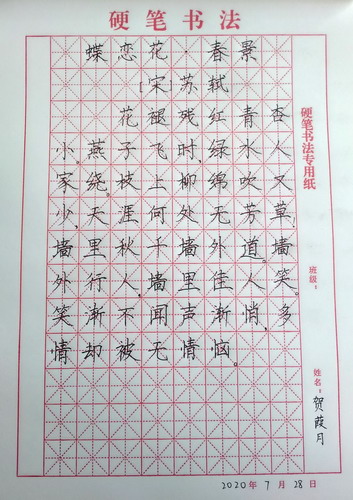 硬笔书法
蝶恋花·春景
[宋]苏轼
花褪残红青杏
小。燕子飞时,绿水人
家绕。枝上柳绵吹又
少,天涯何处无芳草!
墙里秋千墙外道。墙
外行人,墙里佳人笑。
笑渐不闻声渐悄,多
情却被无情恼。
硬笔书法专用纸
班级:
姓名:贺葭月
2020年7月28日